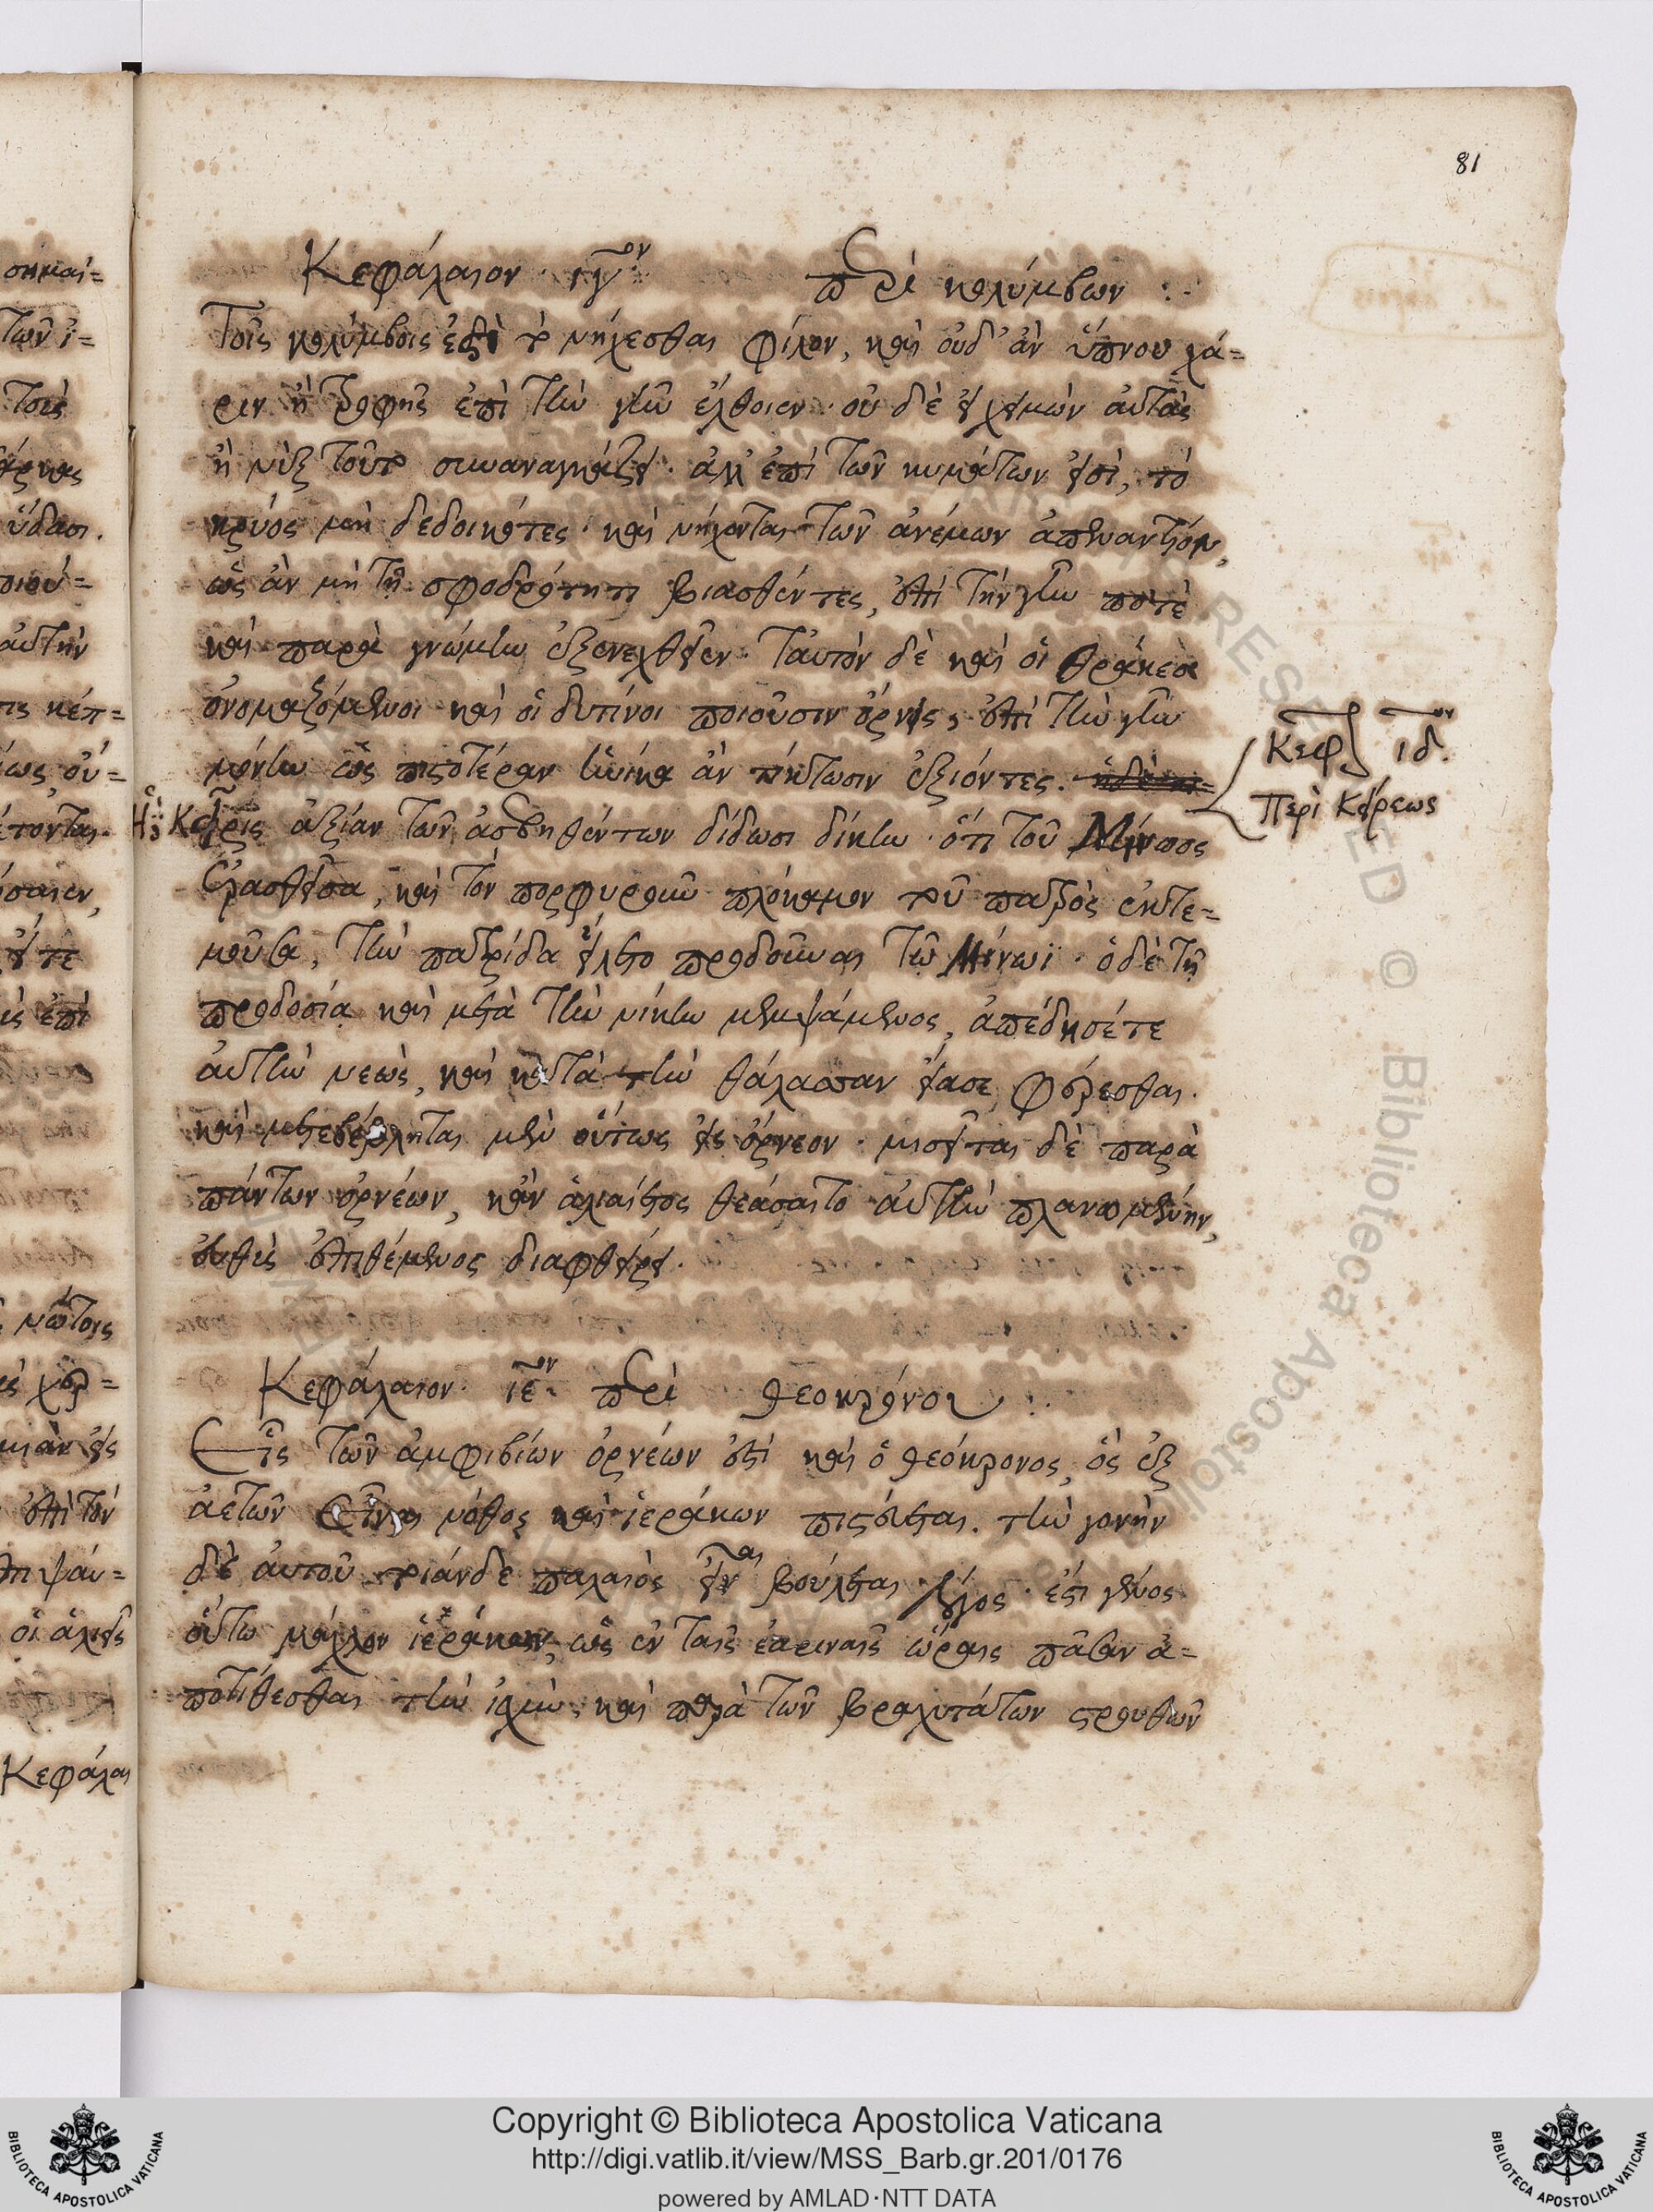 81
Κεφάλαιον ιγ^ον περὶ κολύμβων :
Τοῖς κολύμβοις ἐστὶ τὸ νήχεσθαι φίλον, καὶ οὐδ' ἂν ὕπνου χά=
ριν ἢ τροφῆς ἐπὶ τὴν γῆν ἔλθοιεν. οὐδὲ χειμὼν αὐτοὺς
ἢ νὺξ τοῦτο συναναγκάζει. ἀλλ' ἐπὶ τῶν κυμάτων εἰσὶ, τὸ
κρύος μὴ δεδοικότες. καὶ νήχονται τῶν ἀνέμων ἀπεναντίον,
ὡς ἂν μὴ τῇ σφοδρότητι βιασθέντες, ἐπὶ τὴν γῆν ποτὲ
καὶ παρὰ γνώμην ἐξενεχθεῖεν. Ταυτὸν δὲ καὶ οἱ θράκες
ὀνομαζόμενοι καὶ οἱ δυτίνοι ποιοῦσιν ὄρνεις, ἐπὶ τὴν γῆν
μόνην ὡς πιοτέραν ἡνίκα ἂν πίπτωσιν ἐξιόντες.
Κεφ ιδ^ον.
Περὶ Κείρεως
Ἡ δὲ Κεῖρις ἀξίαν τῶν ἀσεβηθέντων δίδωσι δίκην. ὅτι τοῦ Μίνωος
ἐρασθεῖσα, καὶ τὸν πορφυροῦν πλόκαμον τοῦ πατρὸς ἐκτε=
μοῦσα, τὴν πατρίδα εἵλετο προδοῦναι τῷ Μίνωϊ. ὁ δὲ τῇ
προδοσίᾳ καὶ μετὰ τὴν νίκην μεμψάμενος, ἀπέδησέ τε
αὐτὴν νεὼς, καὶ κατὰ τὴν θάλασσαν εἴασε φέρεσθαι.
καὶ μεταβέβληται μὲν οὕτως εἰς ὄρνεον. μισεῖται δὲ παρὰ
πάντων ὀρνέων, κἂν ἁλιαίετος θεάσαιτο αὐτὴν πλανωμένην,
εὐθὺς ἐπιθέμενος διαφθείρει.
Κεφάλαιον ιε^ον. περὶ θεοκρόνου :
Εἷς τῶν ἀμφιβίων ὀρνέων ἐστὶ καὶ ὁ θεόκρονος, ὃς ἐξ
ἀετῶν εἶναι νόθος καὶ ἱεράκων πιστεύεται. τὴν γονὴν
δὲ αὐτοῦ τοιάνδε παλαιὸς εἶναι βούλεται λόγος. ἔστι γένος
οὕτω μάχλον ἱεράκων, ὡς ἐν ταῖς ἐαριναῖς ὥραις πᾶσαν ἀ=
ποτίθεσθαι τὴν ἰσχὺν, καὶ παρὰ τῶν βραχυτάτων στρουθῶν
Copyright © Biblioteca Apostolica Vaticana
http://digi.vatlib.it/view/MSS_Barb.gr.201/0176
powered by AMLAD·NTT DATA
BIBLIOTECA APOSTOLICA VATICANA
BIBLIOTECA APOSTOLICA VATICANA